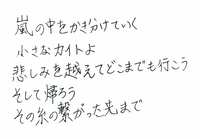 嵐の中をかき分けていく
小さなカイトよ
悲しみを越えてどこまでも行こう
そして帰ろう
その糸の繋がった先まで